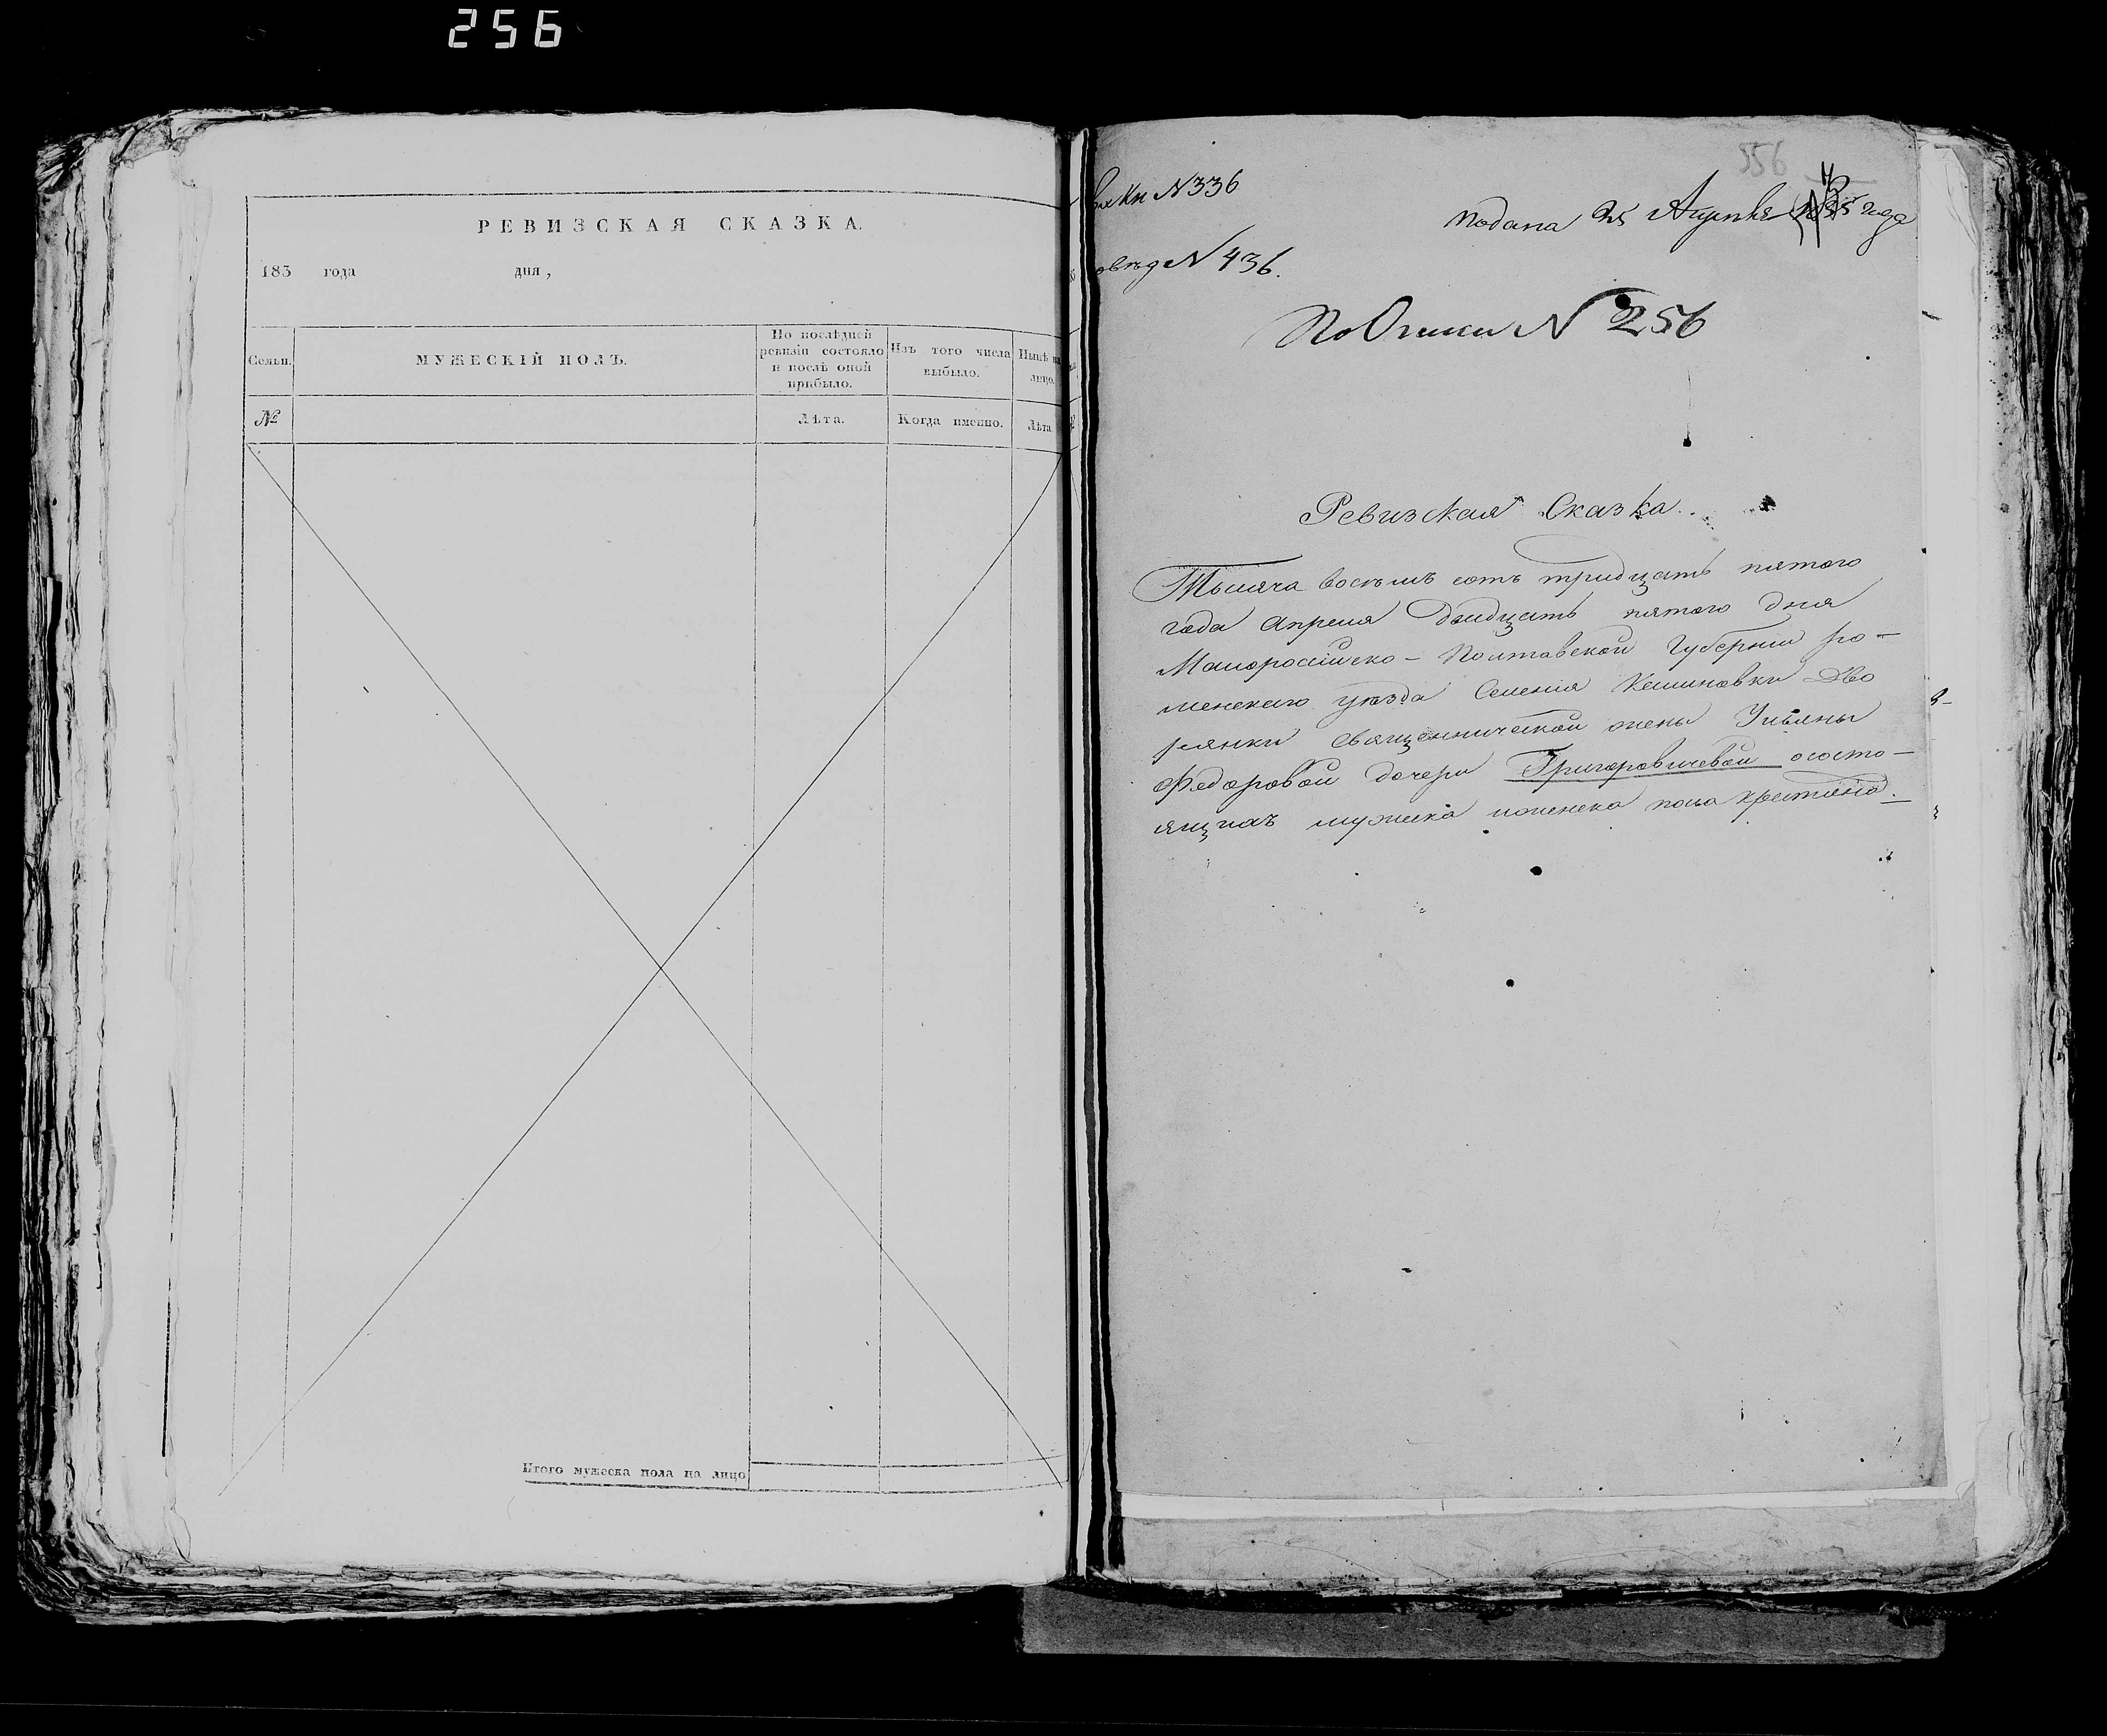 256
РЕВИЗСКАЯ СКАЗКА.
183 года дня,
Семьи.
МУЖЕСКІЙ ПОЛЪ.
По послѣдней
ревизіи состояло
и послѣ оной
прибыло.
Изъ того числа
выбыло.
Нынѣ на
лицо.
№
Лѣта.
Когда именно.
Лѣта
Итого мужеска пола на лицо
556
N 336
подана 25 Апреля года
N 436.
По Описи N 256
Ревизская Сказка
Тысяча восемъ сотъ тридцать пятого
года апреля двадцать пятого дня
Малоросийско - Полтавской Губернии ро -
менского уезда Селения Дво
рянки священнической жены Ульяны
Федоровой дочери Григоровичевой осото -
ящихъ мужеска иженска пола